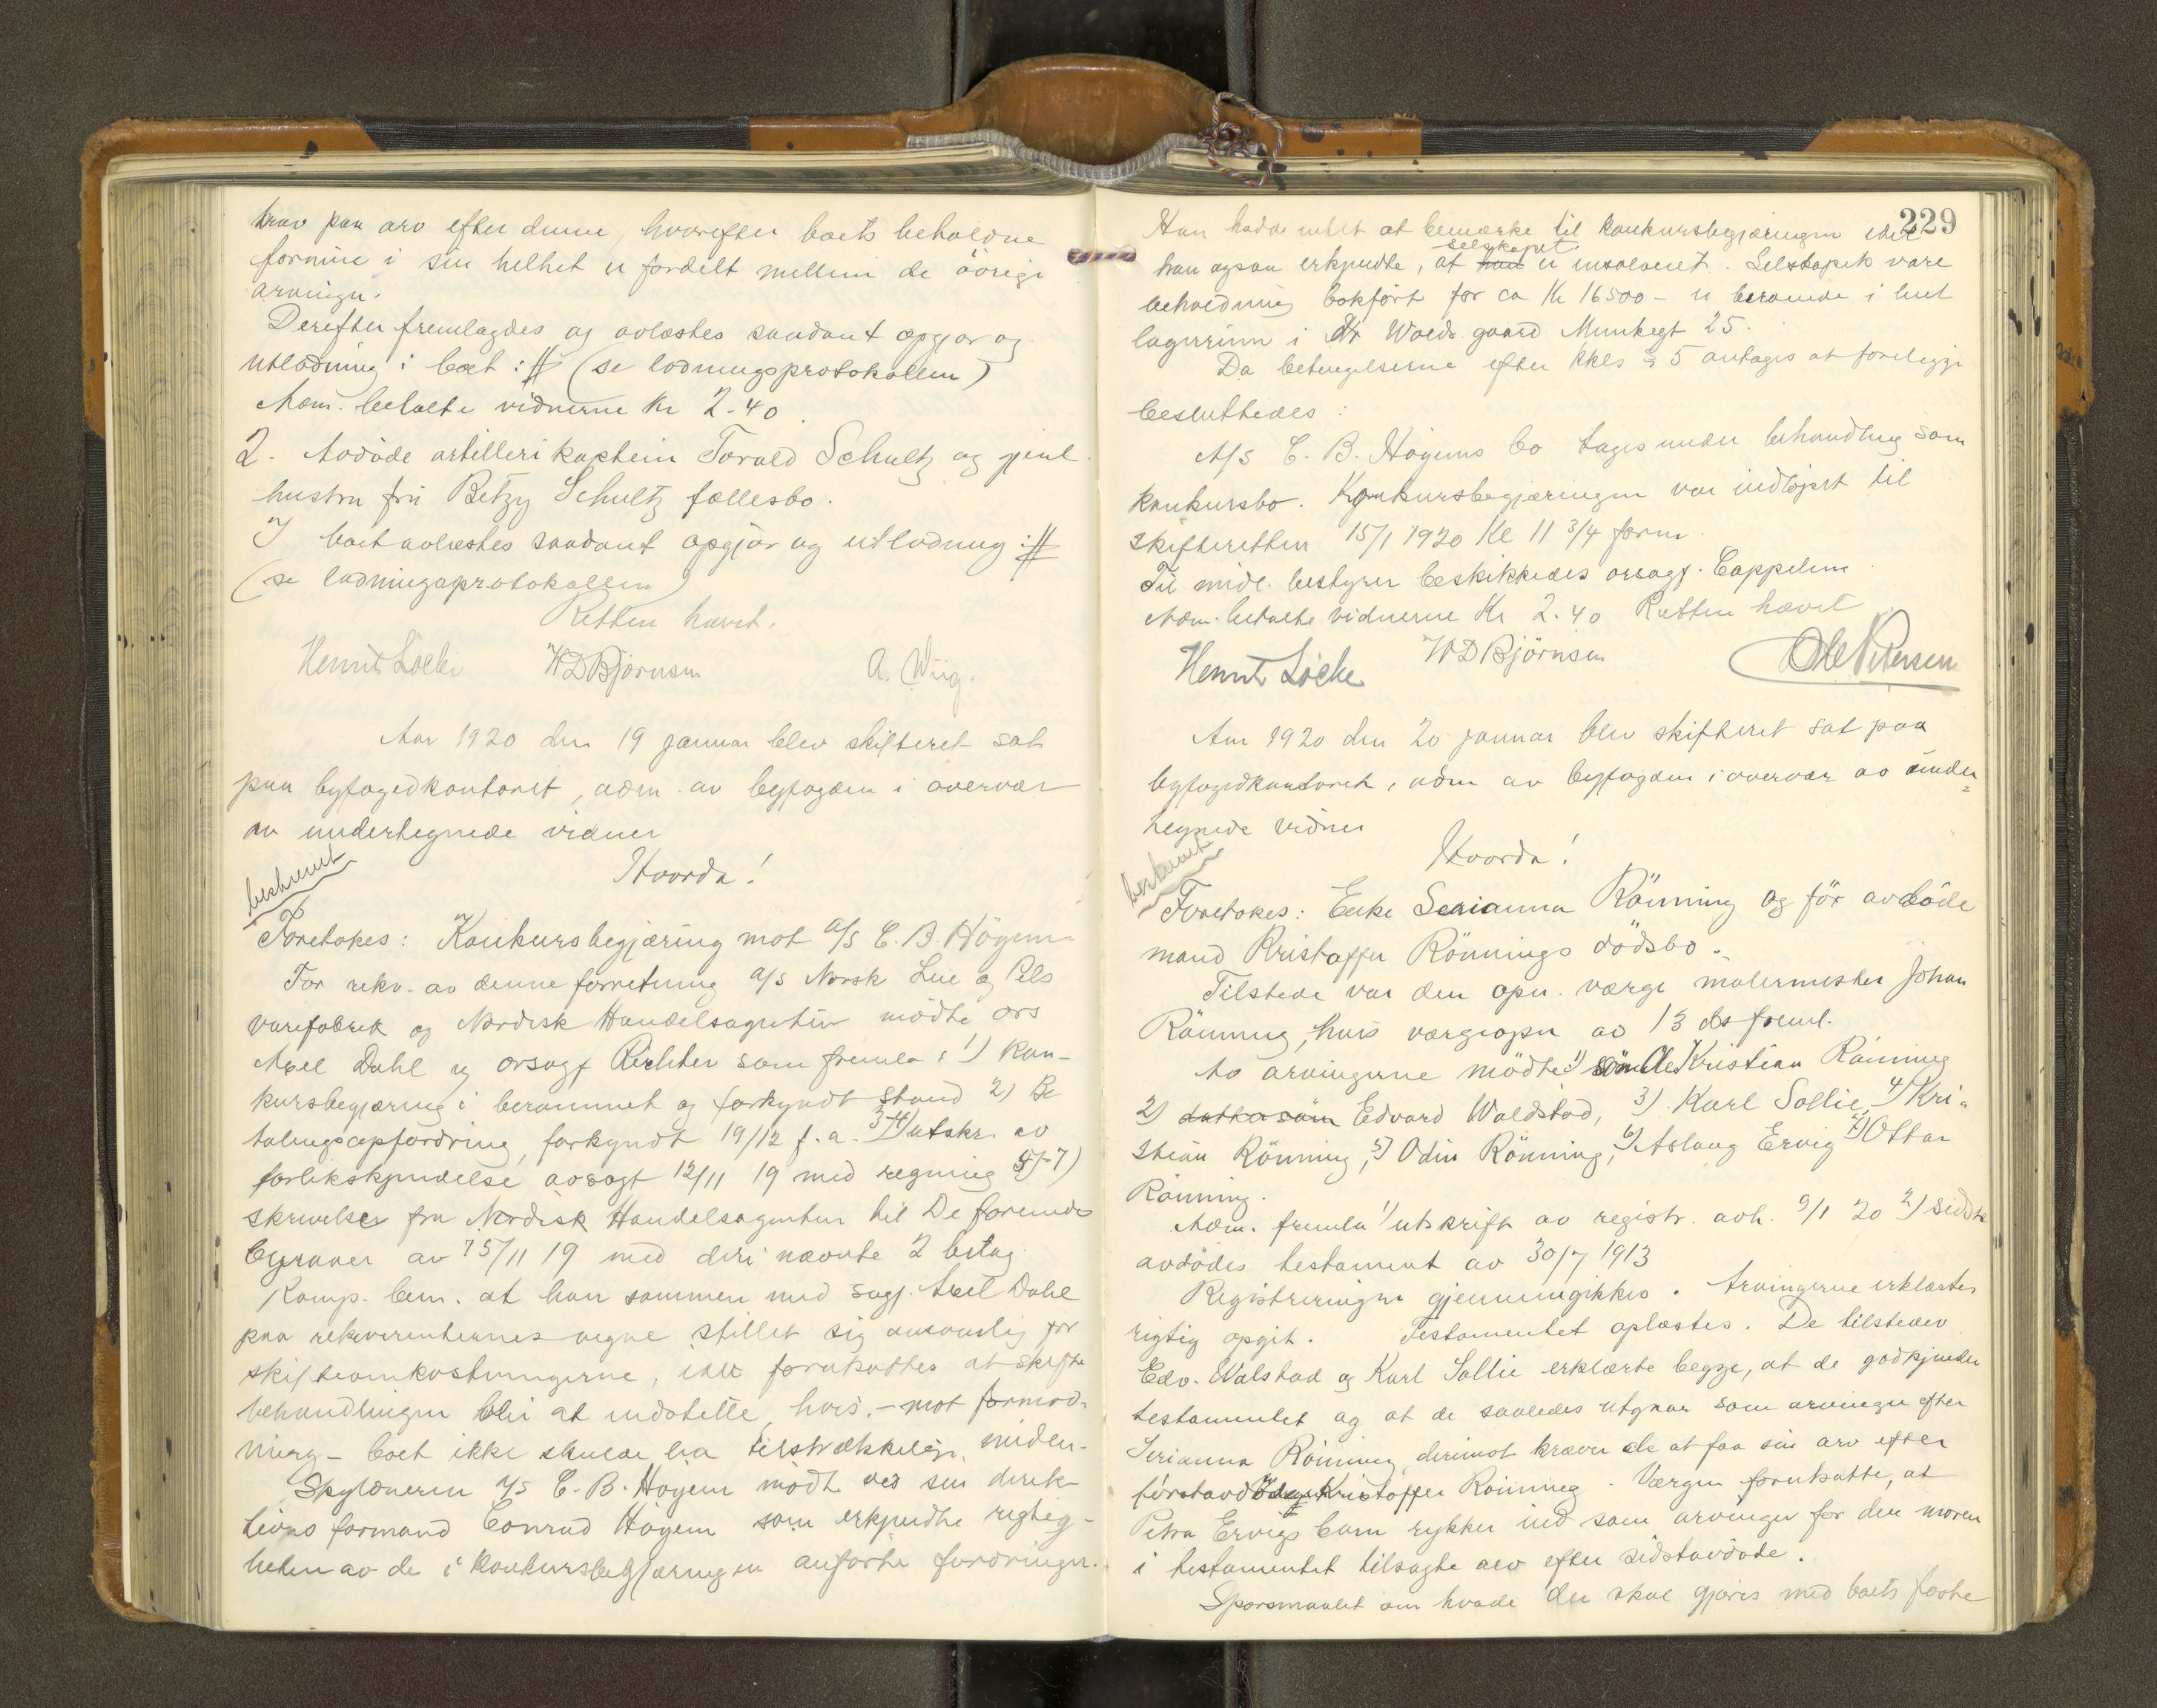 krav paa arv efter denne, hvorefter boets beholdne
formue i sin helhet er fordelt mellem de övrige
arvinger.
Derefter fremlagdes og avlæstes saadant opgjör og
utlodning i boet :# (se lodningsprotokollen)
Adm. betalte vidnerne Kr 2-40
2. Avdöde artillerikaptein Torald Schultz og gjenl.
hustru fru Betzy Schultz fællesbo.
I boet avlæstes saadant opgjör og utlodning :#
(se lodningsprotokollen)
Retten hævet.
Hennr Löcke WDBjörnsen A. Wiig.
Aar 1920 den 19 januar blev skifteret sat
paa byfogedkontoret, adm. av byfogden i overvær
av undertegnede vidner
Hvorda!
beskrevet
Foretokes: Konkursbegjæring mot A/S C. B. Högem
For rekv. av denne forretning A/S Norsk Lue og Pels
varefabrik og Nordisk Handelsagentur mödte ors
Axel Dahl og orsagf Richter som fremla: 1) Kon-
kursbegjæring i berammet og forkyndt stand 2) Be
talingsopfordring, forkyndt 19/12 f. a. 3-4) utskr. av
forlikskjendelse avsagt 12/11 19 med regning 5-7)
skrivelser fra Nordisk Handelsagentur til De forenede
Byraaer av 15/11 19 med deri nævnte 2 bilag.
Komp. bem. at han sammen med sagf. Axel Dahl
paa rekvirenternes vegne stillet sig ansvarlig for
skifteomkostningerne, idet forutsattes at skifte
behandlingen blir at indstille, hvis - mot formod-
ning - boet ikke skulde ha tilstrækkelige midler.
Skyldneren A/S C. B. Högem mödte ved sin direk-
tions formand Conrad Högem som erkjendte rigtig-
heten av de i konkursbegjæringen anförte fordringer.
229
Han hadde intet at bemærke til konkursbegjæringen idet
selskapet
han ogsaa erkjendte, at han er insolvent. Selskapets vare
beholdning bokfört for ca Kr 16500 - er beroende i leiet
lagerrum i Dr Wolds gaard Munkegt 25.
Da betingelserne efter kkls § 5 antages at foreligge
besluttedes:
A/S C. B. Högems bo tages under behandling som
konkursbo. Konkursbegjæringen var indlöpet til
skifteretten 15/1 1920 Kl 11 3/4 form.
Til midl. bestyrer beskikkedes orsagf. Cappelen.
Adm. betalte vidnerne Kr 2.40 Retten hævet
Hennr Löcke WDBjörnsen Ole Petersen
Aar 1920 den 20 januar blev skifteret sat paa
byfogedkontoret, adm av byfogden i overvær av under-
tegnede vidner
Hvorda!
beskrevet
Foretokes: Enke Serianna Rönning og för avdöde
mand Kristoffer Rönnings dödsbo.
Tilstede var den opn. verge malermester Johan
Rönning, hvis vergeopn av 13 ds freml.
Av arvingerne mödte 1) sön Ole Kristian Rönning
2) dattersön Edvard Waldstad, 3) Karl Sollie, 4) Kri-
stian Rönning, 5) Odin Rönning, 6) Aslaug Ervig 7) Ottar
Rönning.
Adm. fremla 1) utskrift av registr. avh. 9/1 20 2) sidst
avdödes testament av 30/7 1913
Registreringen gjennemgikkes. Arvingerne erklærtes
rigtig opgit. Testamentet oplæstes. De tilstedev
Edv. Walstad og Karl Sollie erklærte begge, at de godkjender
testamentet og at de saaledes utgaar som arvinger efter
Serianna Rönning, derimot kræver de at faa sin arv efter
förstavdöde Kristoffer Rönning. Vergen forutsatte, at
Petra Ervigs barn rykker ind som arvinger for den moren
i testamentet tilsagte arv efter sidstavdöde.
Sporsmaalet om hvade der skal gjöres med boets faste